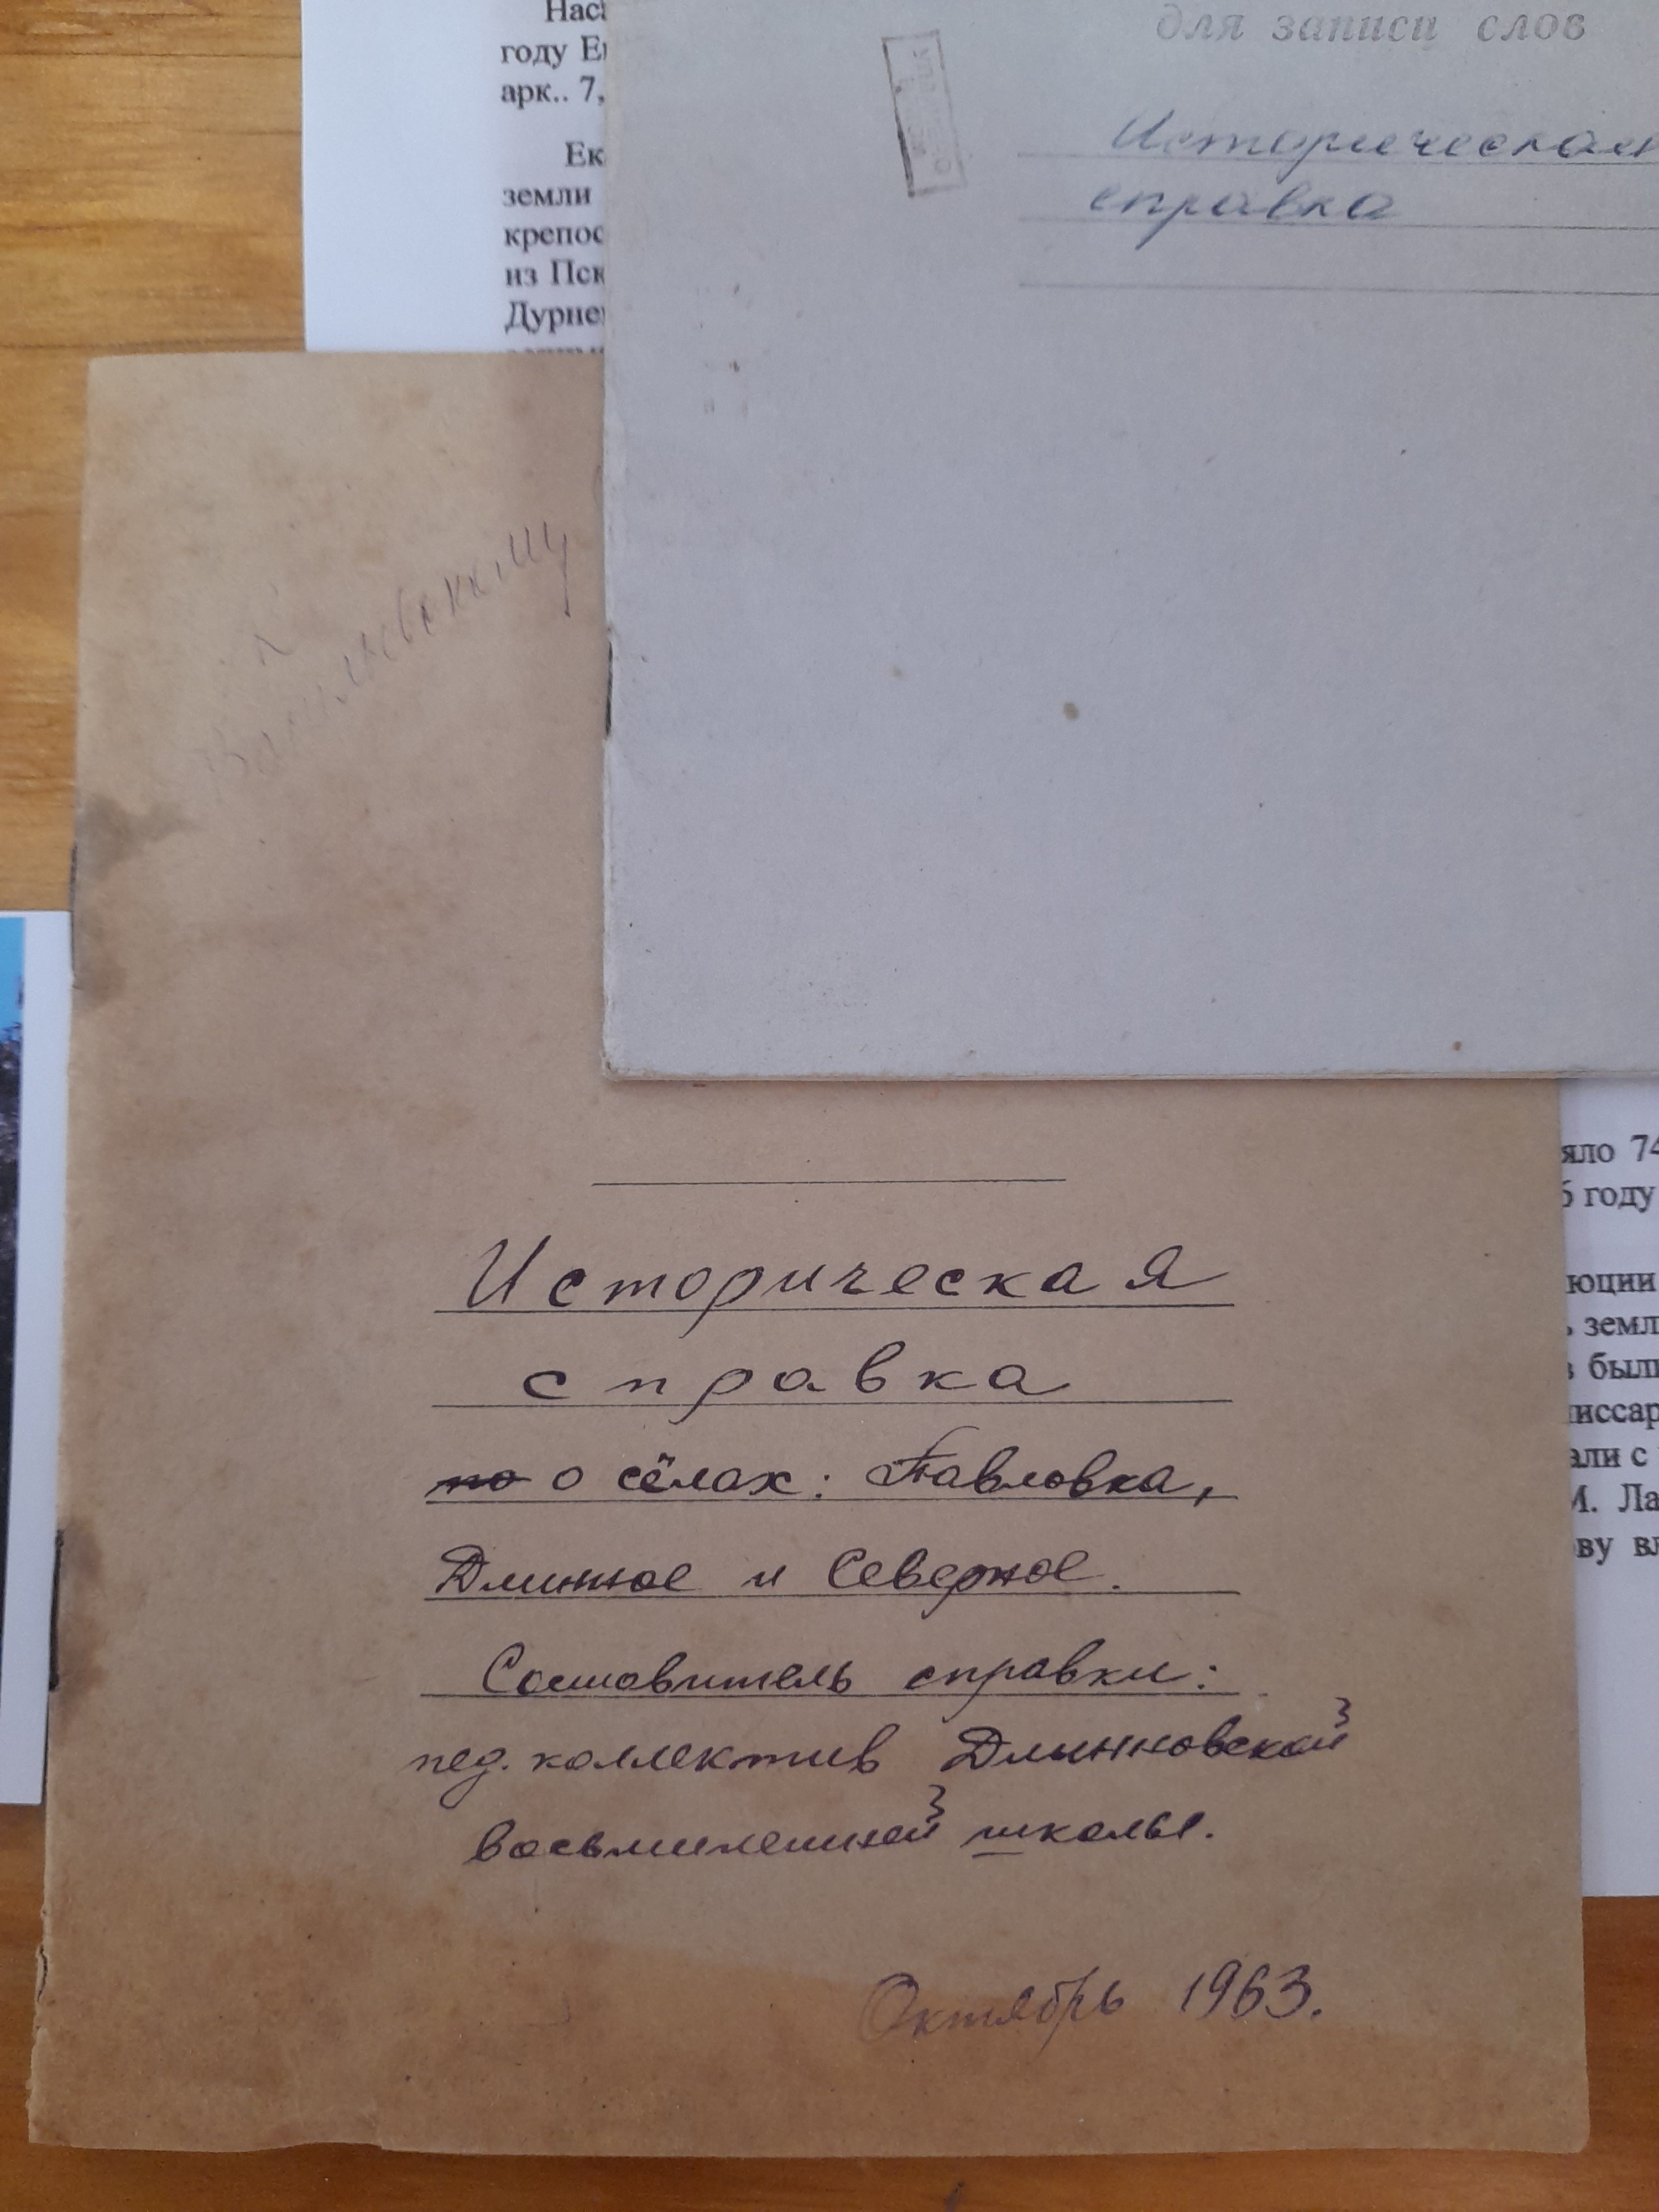 году
арк.. 7,
земли
из
для записи слов
Историческая
справка
К
Васильевскому
Историческая
справка
по о сёлах: Павловка,
Длинное и Северное.
Составитель справки:
пед. коллектив Длинновской
восьмилетней школы.
Октябрь 1963.
яло 74
году
были
али с
М. Ла